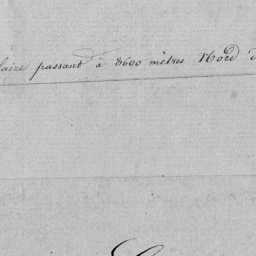 laire passant à 8600 mètres Nord